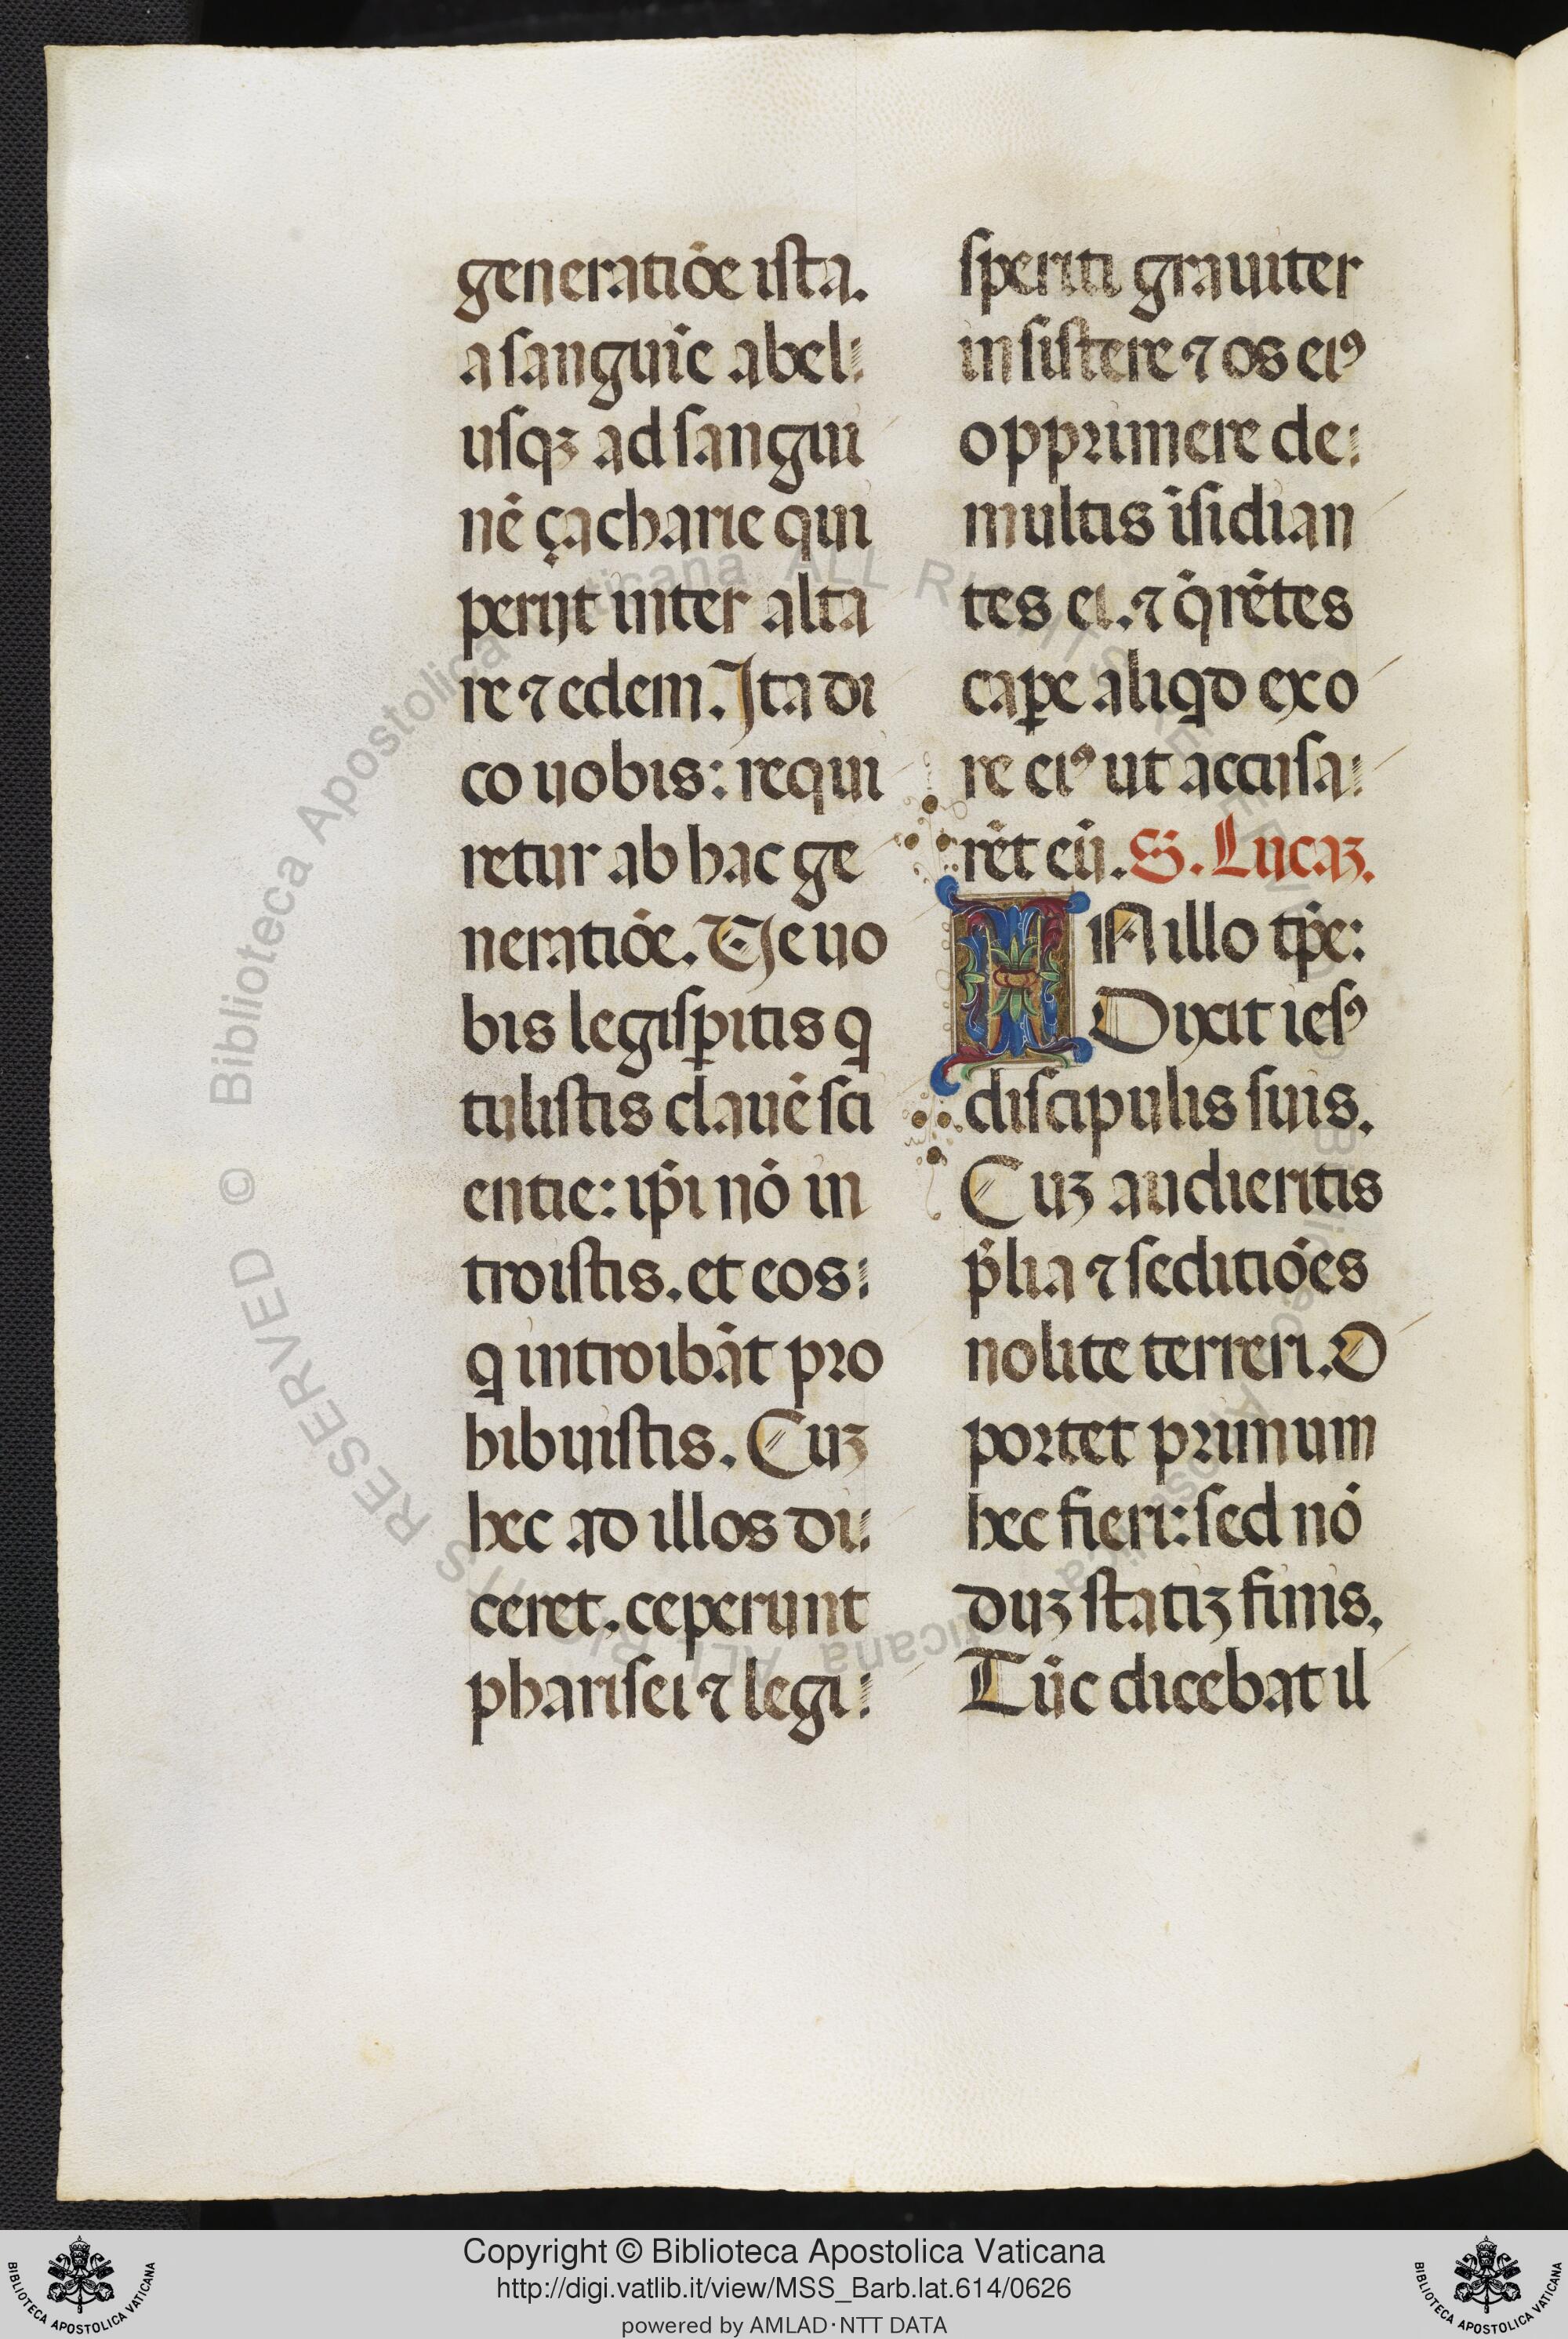 generatiōe ista.
a sanguīe abel
usqꝫ ad sangui
nē çacharie qui
perijt inter alta
re ⁊ edem. Ita di
co uobis: requi
retur ab hac ge
neratiōe. Ve uo
bis legisꝑitis q
tulistis clauē sci
entie: ip̄i nō in
troistis. et eos
q introibāt pro
hibuistis. Cuꝫ
hec ad illos di
ceret. ceperunt
pharisei ⁊ legi
speriti grauiter
insistere ⁊ os eiꝰ
opprimere de
multis īsidian
tes ei. ⁊ q̄rētes
caꝑe aliqd exo
re eiꝰ ut accusa
rēt eū. S. Lucaꝫ.
IN illo tp̄e:
Dixit iesꝰ
discipulis suis.
Cuꝫ audieritis
p̄lia ⁊ seditiōes
nolite terreri. O
portet primum
hec fieri: sed nō
duꝫ statiꝫ finis.
Tūc dicebat il
© Biblioteca Apostolica Vaticana ALL RIGHTS RESERVED
© Biblioteca Apostolica Vaticana ALL RIGHTS RESERVED
Copyright © Biblioteca Apostolica Vaticana
http://digi.vatlib.it/view/MSS_Barb.lat.614/0626
powered by AMLAD·NTT DATA
BIBLIOTECA APOSTOLICA VATICANA
BIBLIOTECA APOSTOLICA VATICANA